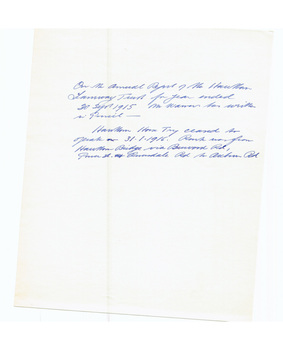 On the Annual Report of the Hawthorn
Tramway Trust for year ended
30 Sept 1915 Mr has written
in Pencil —
Hawthorn Horse Try ceased to
operate on 31-1-1916. Route was from
Hawthorn Bridge via Burwood Rd,
Power St. Rd to Auburn Rd